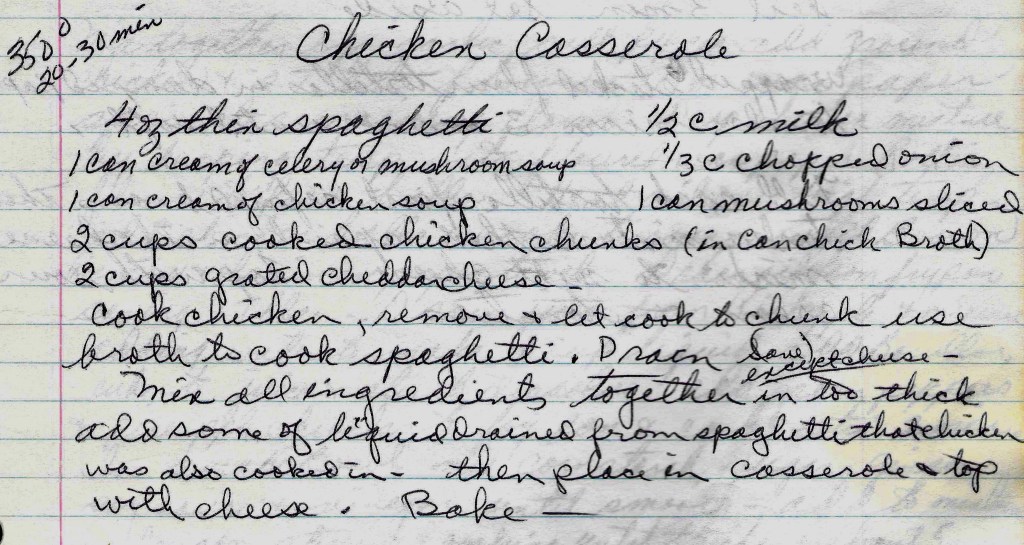 350°
20-30 min
Chicken Casserole
4 oz thin spaghetti 1/2 c milk
1 can cream of celery or mushroom soup 1/3 c chopped onion
1 can cream of chicken soup 1 can mushrooms sliced
2 cups cooked chicken chunks (in can chick Broth)
2 cups grated cheddar cheese -
Cook chicken, remove + let cook to chunk use
broth to cook spaghetti. Drain (save)
except cheese -
Mix all ingredients together in too thick
add some of liquid drained from spaghetti that chicken
was also cooked in - then place in casserole & top
with cheese. Bake —